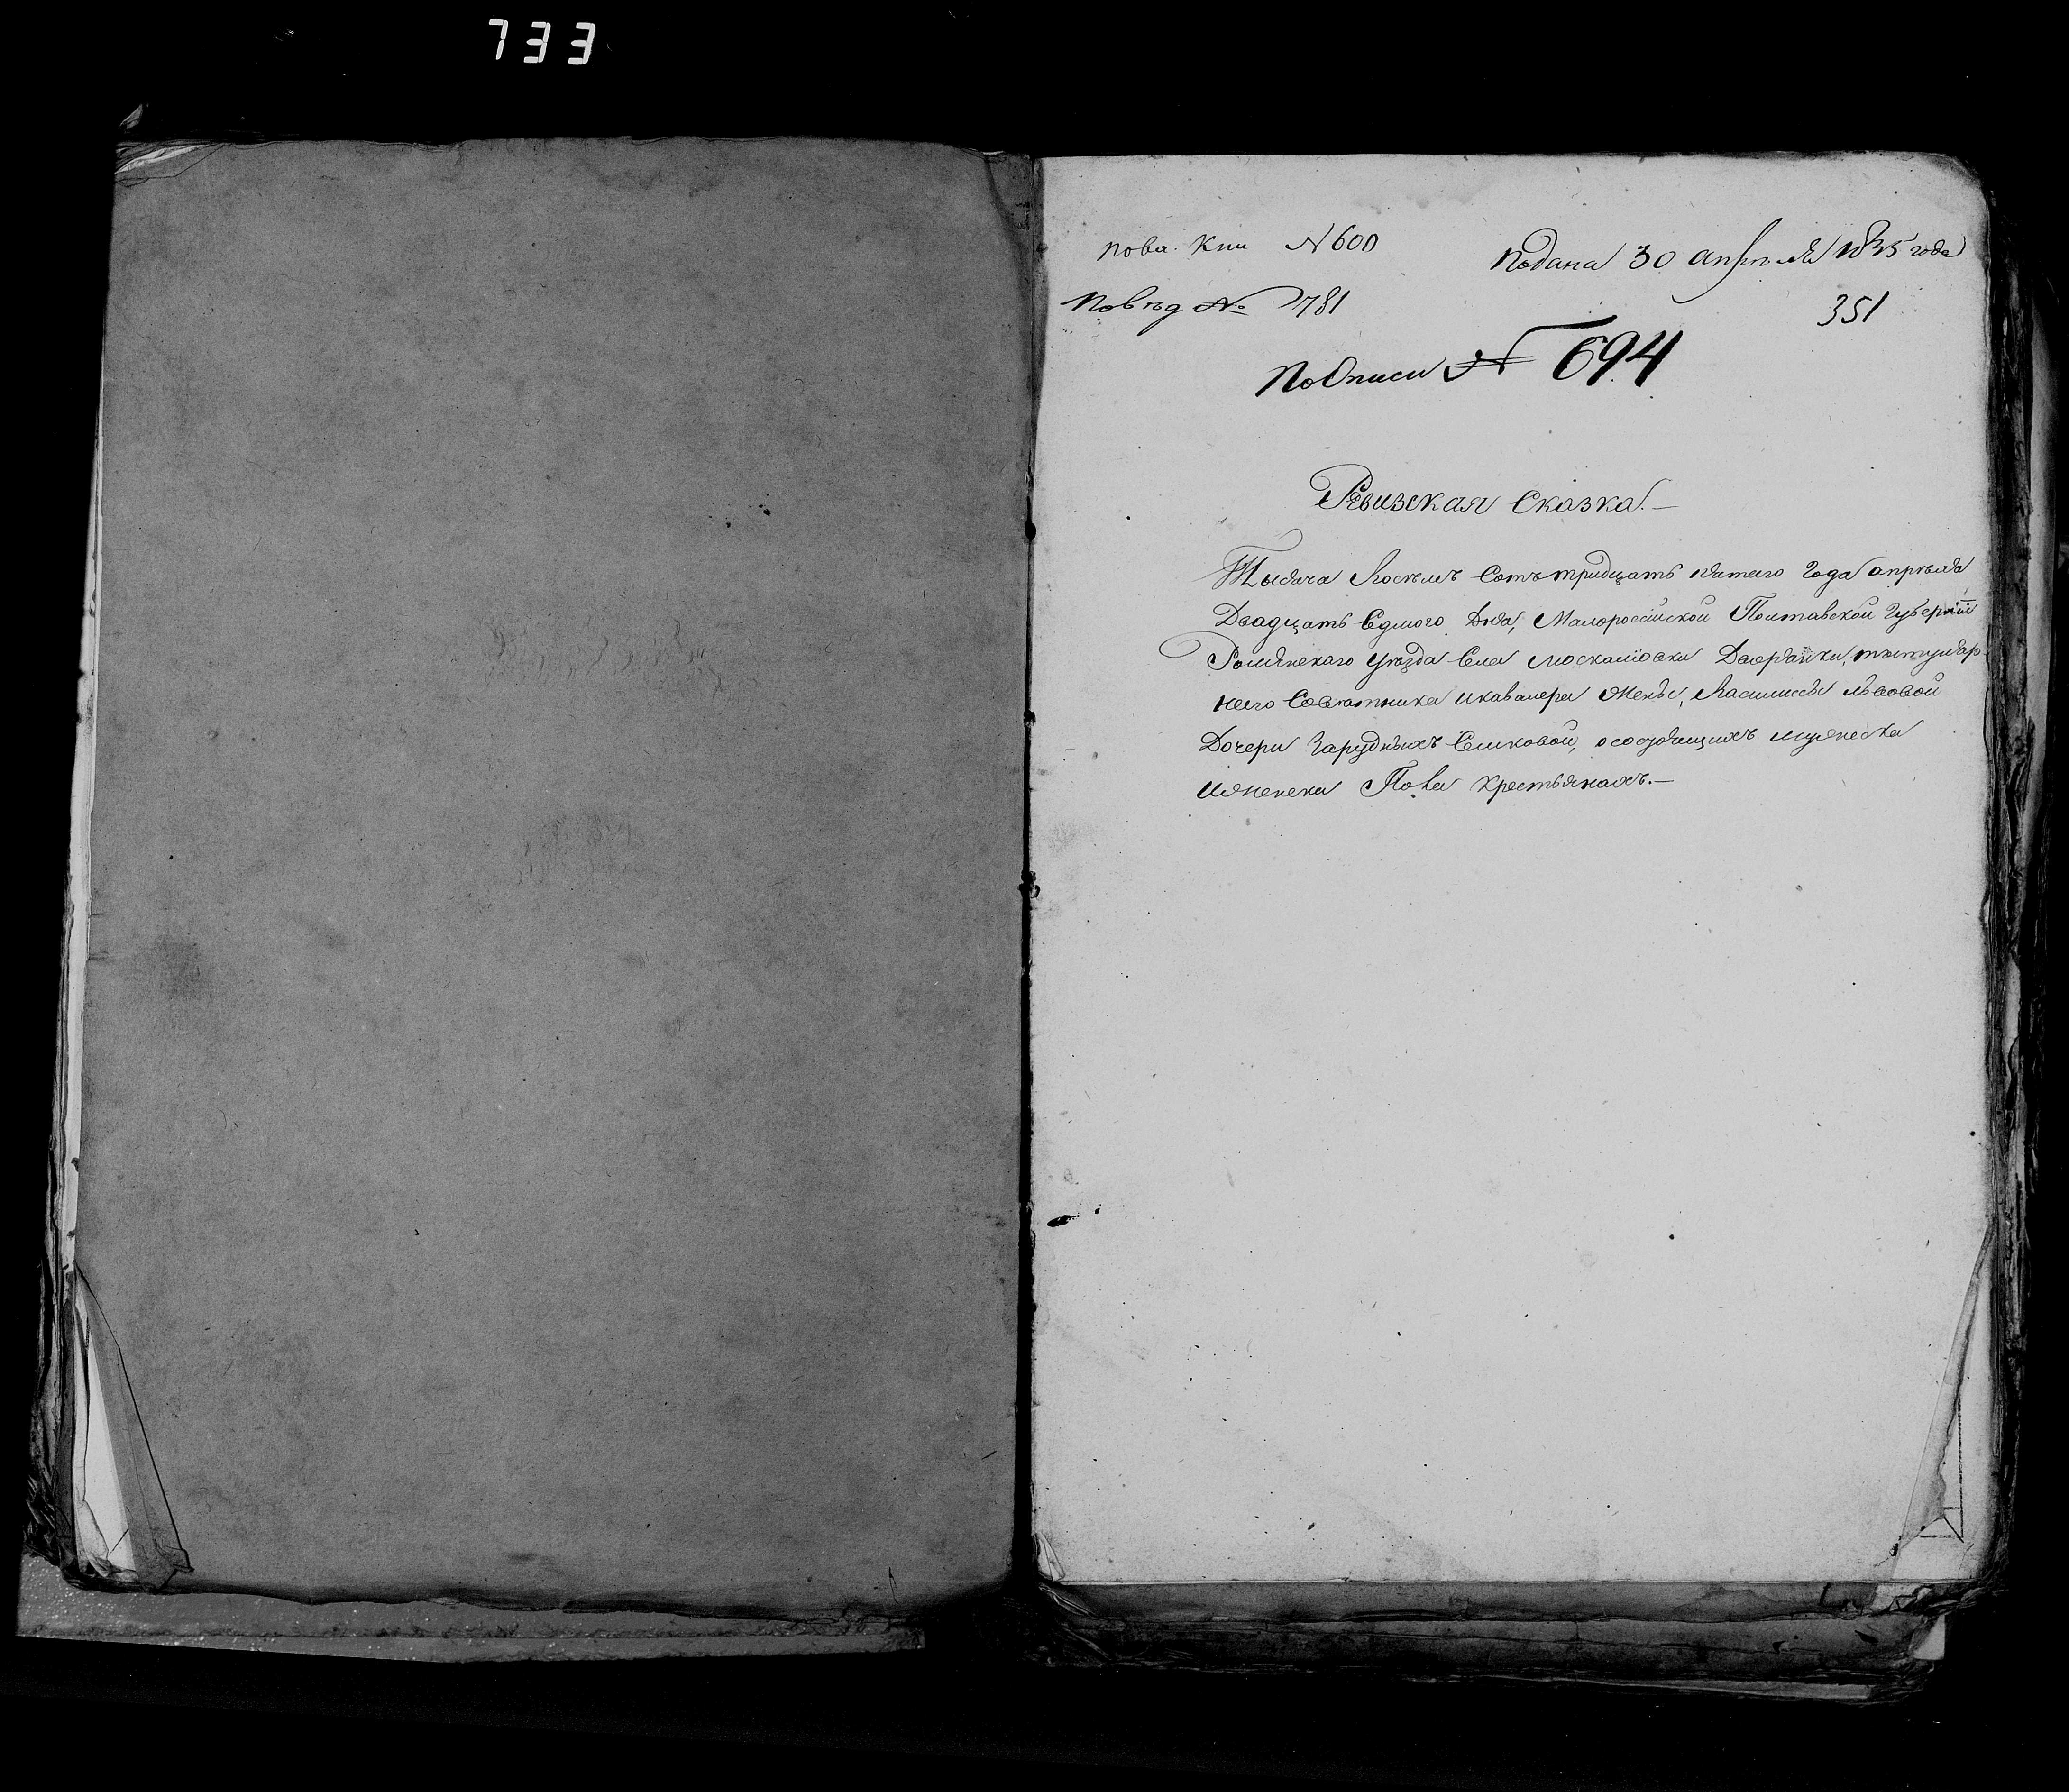 733
пова. Кни N 600
Подана 30 апрѣля 1835 года
Повѣд № 781
351
По Описи № 694
Ревизская Сказка.—
Тысяча Восемъ Сотъ тридцать пятого года апрѣля
Двадцать Едмого Дня, Малороссійской Полтавской Губерніи
Роменскаго уѣзда Села Москалювки, титуляр-
ного Совѣтника и кавалера Жены, Василисы Львовой
Дочери Зарудныхъ, о состоящихъ мужеска
и женска Пола крестьянахъ.—